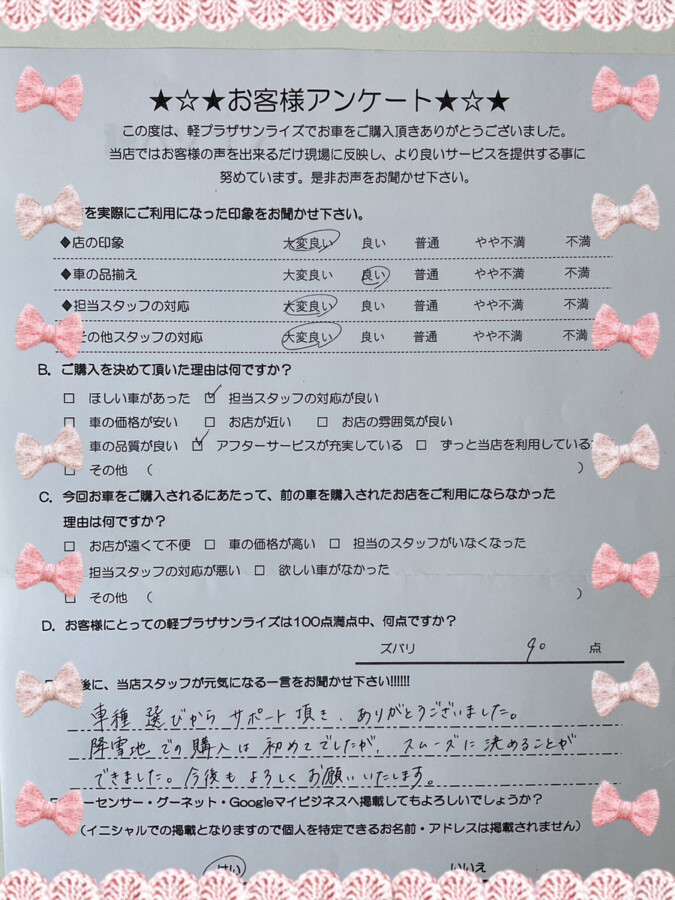 ★☆★お客様アンケート★☆★
この度は、軽プラザサンライズでお車をご購入頂きありがとうございました。
当店ではお客様の声を出来るだけ現場に反映し、より良いサービスを提供する事に
努めています。是非お声をお聞かせ下さい。
を実際にご利用になった印象をお聞かせ下さい。
◆店の印象 大変良い 良い 普通 やや不満 不満
◆車の品揃え 大変良い 良い 普通 やや不満 不満
◆担当スタッフの対応 大変良い 良い 普通 やや不満 不満
その他スタッフの対応 大変良い 良い 普通 やや不満 不満
B. ご購入を決めて頂いた理由は何ですか？
□ ほしい車があった ☑ 担当スタッフの対応が良い
□ 車の価格が安い □ お店が近い □ お店の雰囲気が良い
車の品質が良い ☑ アフターサービスが充実している □ ずっと当店を利用している
□ その他 （ ）
C. 今回お車をご購入されるにあたって、前の車を購入されたお店をご利用にならなかった
理由は何ですか？
□ お店が遠くて不便 □ 車の価格が高い □ 担当のスタッフがいなくなった
担当スタッフの対応が悪い □ 欲しい車がなかった
□ その他 （ ）
D. お客様にとっての軽プラザサンライズは100点満点中、何点ですか？
ズバリ 90 点
後に、当店スタッフが元気になる一言をお聞かせ下さい!!!!!!
車種選びからサポート頂き、ありがとうございました。
降雪地での購入は初めてでしたが、スムーズに決めることが
できました。今後もよろしくお願いいたします。
ーセンサー・グーネット・Googleマイビジネスへ掲載してもよろしいでしょうか？
（イニシャルでの掲載となりますので個人を特定できるお名前・アドレスは掲載されません）
はい いいえ